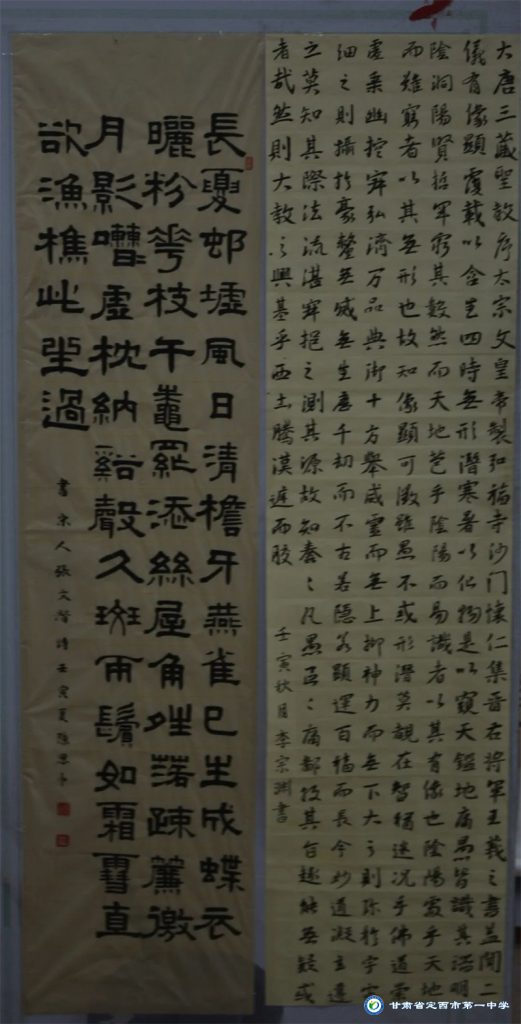 大唐三藏聖教序太宗文皇帝製弘福寺沙门懷仁集晉右將軍王羲之書盖聞二
儀有像顯覆載以含生四時無形潛寒暑以化物是以窺天鑑地庸愚皆識其端明
陰洞陽賢哲罕窮其數然而天地苞乎陰陽而易識者以其有像也陰陽處乎天地
而難窮者以其無形也故知像顯可徵雖愚不或形潛莫覩在智猶迷况乎佛道崇
虛乘幽控寂弘濟万品典御十方舉威靈而無上抑神力而無下大之則弥於宇宙
細之則攝於豪釐無滅無生歷千劫而不古若隱若顯運百福而長今妙道凝玄遵
之莫知其際法流湛寂挹之測其源故知蠢々凡愚區々庸鄙投其旨趣能無疑或
者哉然則大教之興基乎西土騰漢庭而皎
壬寅秋月李宗渊書
長夏邨墟風日清檐牙燕雀已生成蝶衣
曬粉花枝午鼄网添絲屋角晴落疎簾邀
月影嘈虛枕納谿聲久斑兩鬢如霜雪直
欲漁樵此生過
書宋人張文潛詩壬寅夏
甘肃省定西市第一中学